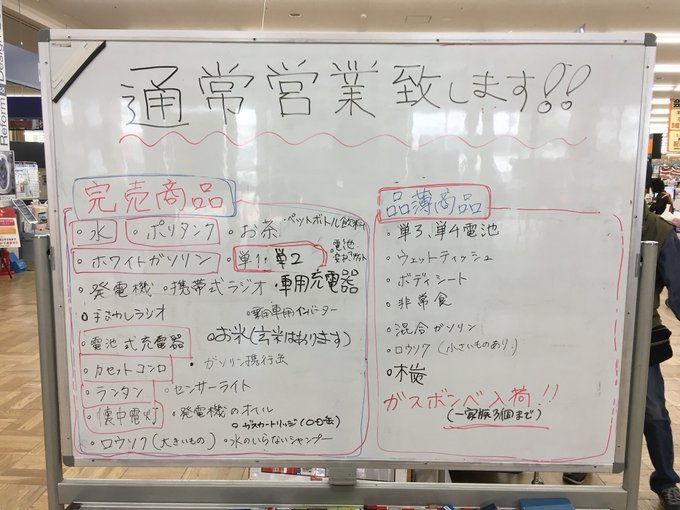 Reform & Design
通常営業致します!!
完売商品
・水 ・ポリタンク ・お茶 ・ペットボトル飲料
・ホワイトガソリン ・単1・単2 ・電池
・発電機 ・携帯式ラジオ ・車用充電器
・手まわしラジオ
・電池式充電器 ・お米(玄米はあります)
・カセットコンロ ・ガソリン携行缶
・ランタン ・センサーライト
・懐中電灯 ・発電機のオイル
・ガスカートリッジ(OD缶)
・ロウソク(大きいもの) ・水のいらないシャンプー
品薄商品
・単3、単4電池
・ウェットティッシュ
・ボディシート
・非常食
・混合ガソリン
・ロウソク(小さいものあり)
・木炭
ガスボンベ入荷!!
(一家族3個まで)